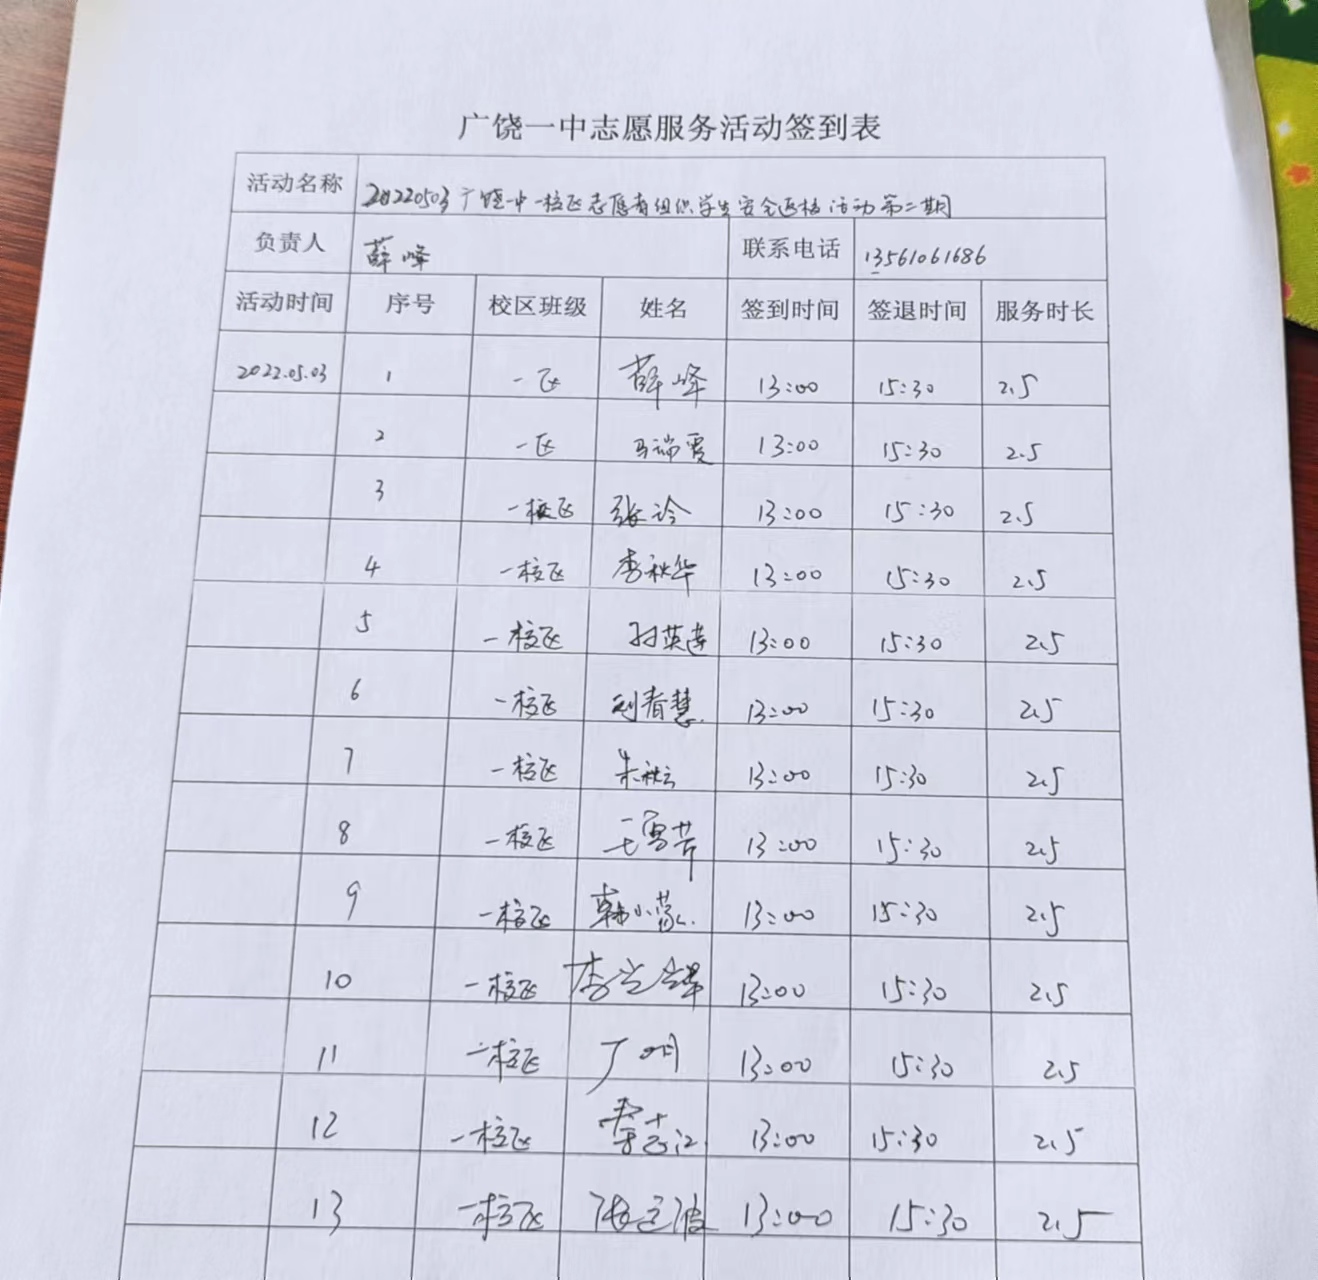 广饶一中志愿服务活动签到表
活动名称 20220503广饶一中一校区志愿者组织学生安全返校活动第二期
负责人 薛峰 联系电话 13561061686
活动时间 序号 校区班级 姓名 签到时间 签退时间 服务时长
2022.05.03 1 一区 薛峰 13:00 15:30 2.5
2 一区 马瑞霞 13:00 15:30 2.5
3 一校区 张玲 13:00 15:30 2.5
4 一校区 李秋华 13:00 15:30 2.5
5 一校区 孙英莲 13:00 15:30 2.5
6 一校区 刘春慧 13:00 15:30 2.5
7 一校区 朱秋云 13:00 15:30 2.5
8 一校区 13:00 15:30 2.5
9 一校区 韩小蒙 13:00 15:30 2.5
10 一校区 13:00 15:30 2.5
11 一校区 13:00 15:30 2.5
12 一校区 13:00 15:30 2.5
13 一校区 13:00 15:30 2.5